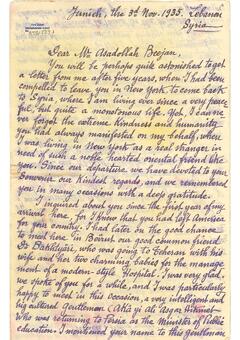 Junieh, the 3d Nov. 1935. Lebanon
Syria
Dear Mr Asadollah Beejan,
You will be perhaps quite astonished to get
a letter from me after five years, when I had been
compelled to leave you in New York to come back
to Syria, where I am living ever since a very peace
ful, but quite a monotonous life. Yet I can ne
ver forgot the extreme kindness and humanity
you had always manifested on my behalf, when
I was living in New York as a real stranger in
need of such a noble hearted oriental friend like
you. Since our departure, we have devoted to your
Souvenir our kindest regards, and we remembered
you in many occasions with a deep gratitude.
I inquired about you since the first year of my
arrival here, for I knew that you had left America
for your country. I had later on the good chance
to meet here in Beirut our good common friend
Dr Bakhtiari, who was going to Teheran with his
wife and her two charming babies for the manage
ment of a modern-style Hospital. I was very glad,
we spoke of you for a while, and I was particularly
happy to meet in this occasion, a very intelligent and
big cultured Gentleman (Aka yi Ali Asgar Hikmat
who was returning to Persia as the Minister of Public
education. I mentioned your name to this gentleman